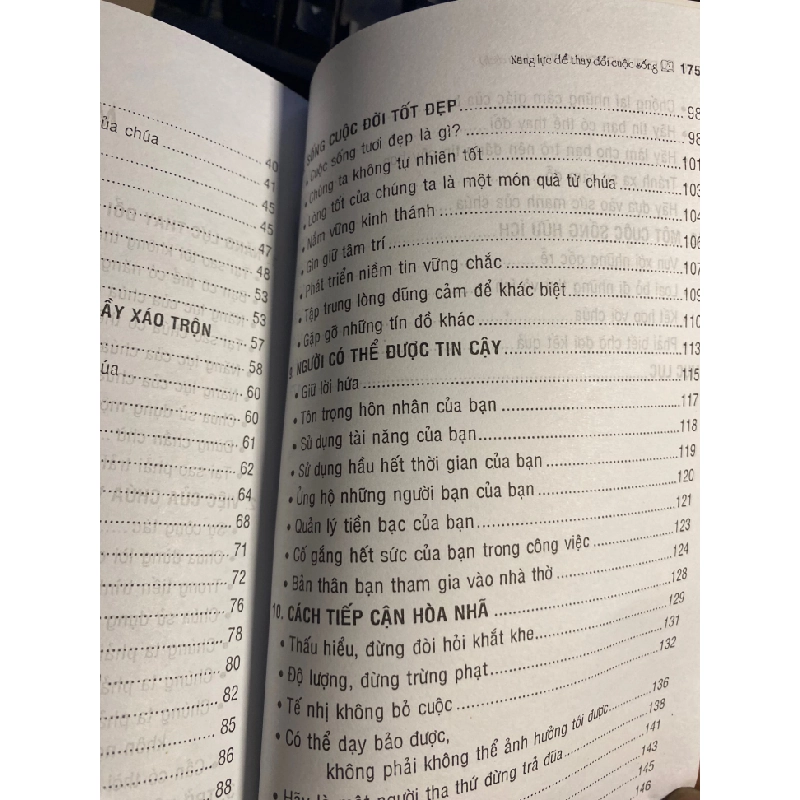 ủa chúa
40
41
45
45
47
48
53
53
ẦY XÁO TRỘN
57
58
úa
60
60
61
62
64
68
71
72
76
78
80
82
85
86
88
Năng lực để thay đổi cuộc sống 175
SỐNG CUỘC ĐỜI TỐT ĐẸP 98
• Cuộc sống tươi đẹp là gì? 98
• Chúng ta không tự nhiên tốt 101
• Lòng tốt của chúng ta là một món quà từ chúa 103
• Nắm vững kinh thánh 104
• Gìn giữ tâm trí 106
• Phát triển niềm tin vững chắc 107
• Tập trung lòng dũng cảm để khác biệt 109
• Gặp gỡ những tín đồ khác 110
9 NGƯỜI CÓ THỂ ĐƯỢC TIN CẬY 113
• Giữ lời hứa 115
• Tôn trọng hôn nhân của bạn 117
• Sử dụng tài năng của bạn 118
• Sử dụng hầu hết thời gian của bạn 119
• Ủng hộ những người bạn của bạn 120
• Quản lý tiền bạc của bạn 121
• Cố gắng hết sức của bạn trong công việc 123
• Bản thân bạn tham gia vào nhà thờ 124
10. CÁCH TIẾP CẬN HÒA NHÃ 128
• Thấu hiểu, đừng đòi hỏi khắt khe 129
• Độ lượng, đừng trừng phạt 131
• Tế nhị không bỏ cuộc 132
• Có thể dạy bảo được,
không phải không thể ảnh hưởng tới được 136
• Hãy là một người tha thứ đừng trả đũa 138
141
143
145
146